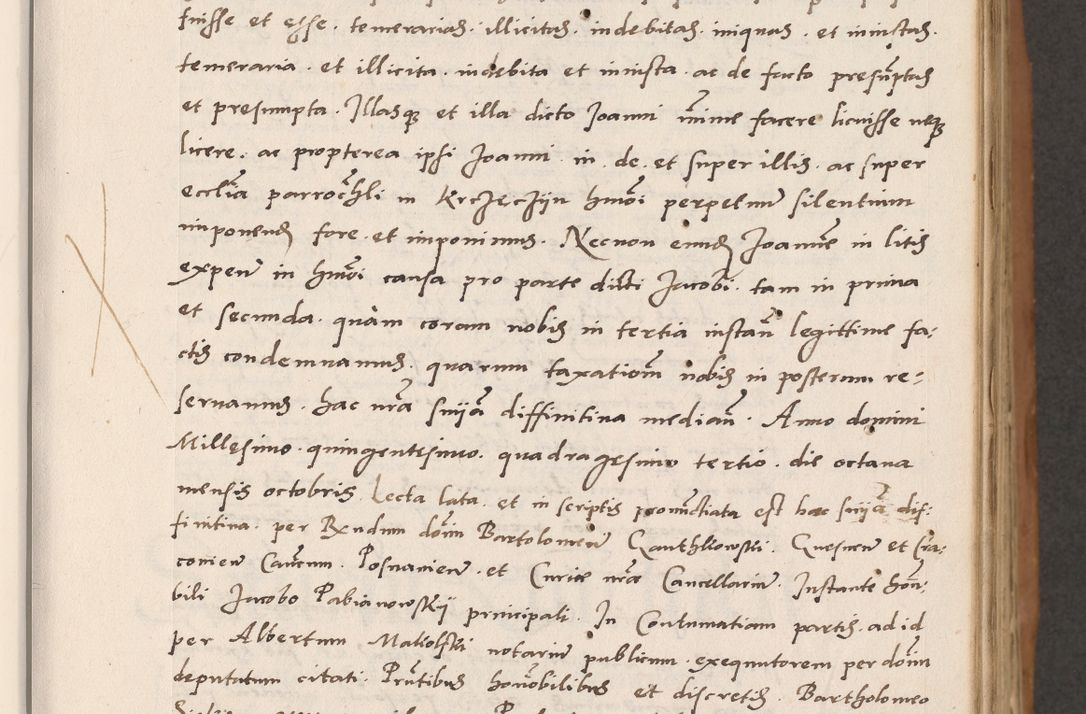 fuisse et esse. temerarias. illicitas. indebitas. iniquas. et iniustas.
temeraria. et illicita. indebita et iniusta. ac de facto presu̅ptas
et presumpta. Illasq̨ et illa dicto Joanni mĩme facere licuisse neq̨
licere. ac propterea ipsi Joanni. in. de. et super illis. ac super
eccl̅ia̅ parroch̅li in hm̅oi perpetuu̅ silentium
imponend̨ fore. et imponimus. Necnon eund̨ Joanne̅ in litis
expen̅ in hm̅oi causa pro parte dicti Jacobi. tam in prima
et secunda. quàm coram nobis in tertia instan̅ legittime fa:
ctis condemnamus. quarum taxatione̅ nobis in posterum re:
seruamus. hac nr̅a sn̅ia̅ diffinitiua median̅. Anno domini
Millesimo. quingentesimo. quadragesimo tertio. die octaua
mensis octobris. Lecta lata. et in scriptis pronu̅ctiata est hac sn̅ia̅ dif:
finitiua. per R̅ndum do̅m Bartolomeu̅ Ganthkowski. Gnesnen̅ et Cra:
couien̅ Can̅cum. Posnanien̅. et Curie nr̅e Cancellariu̅. Instante hon̅:
bili Jacobo Pabianowskij principali. In Contumatiam partis. ad id
per Albertum notariu̅ publicum. exequutorem per do̅m
deputatum citati. Pn̅tibus hono̅bilibus et discretis. Bartholomeo